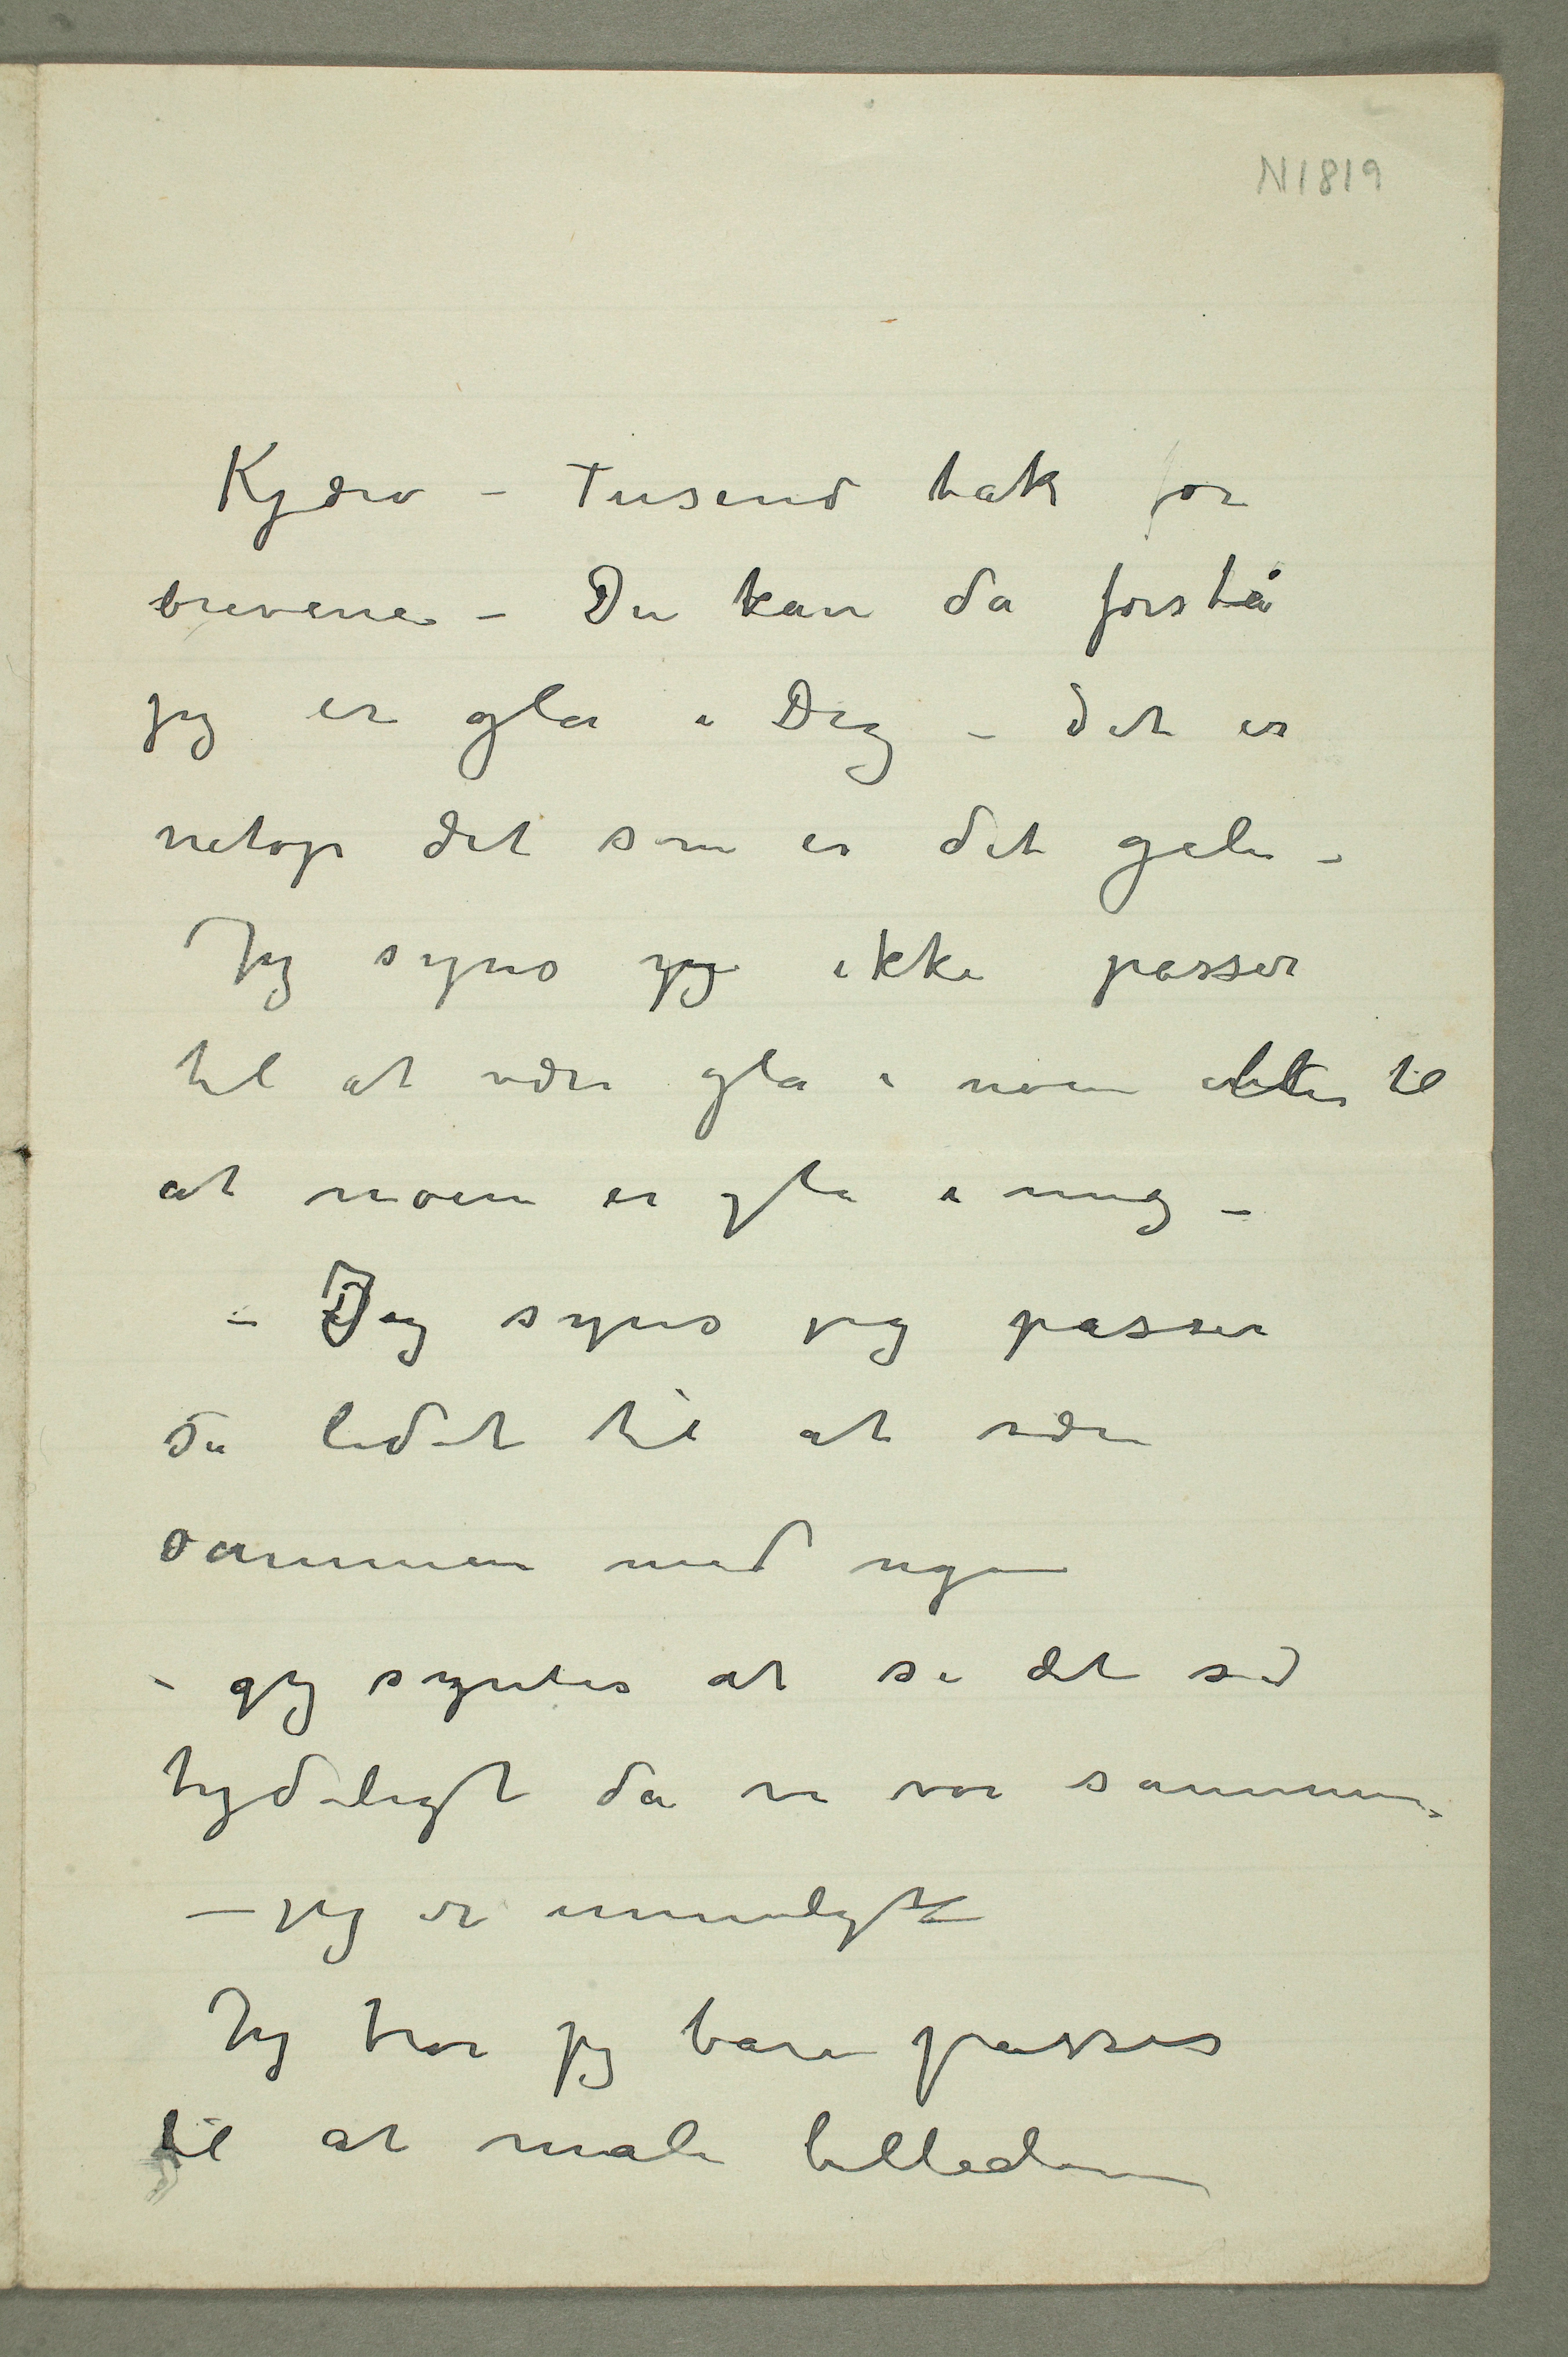 N1819
Kjære – Tusend tak for
brevene – Du kan da forstå
jeg er gla i Dig – det er
netop det som er det gale –
Jeg syns jeg ikke passer
til at være gla i noen eller til
at noen er gla i mig –
– Jeg syns jeg passer
så lidet til at være
sammen med nogen
– jeg syntes at se det så
tydeligt da vi var sammen
– jeg er umuligt
Jeg tror jeg bare passer
til at male billederne